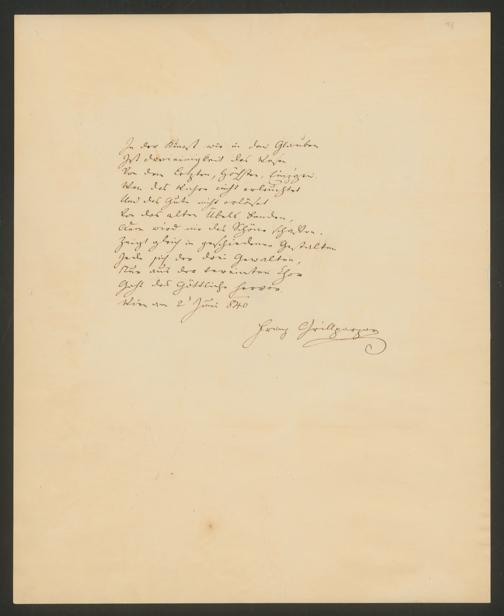 In der Kunst wie in dem Glauben
Ist Dreieinigkeit des Wesen
Von dem Letzten, Höchsten, Einzigen.
Wen das Wahre nicht erleuchtet
Und das Gute nicht erlöset
Von des alten Übels Banden,
Dem wird nie das Schöne
Zeigt gleich in geschiedenen Gestalten
Jede sich der drei Gewalten,
Nur aus der vereinten Chor
Geht das Göttliche hervor.
Wien am 2 Juni 840
Franz Grillparzer